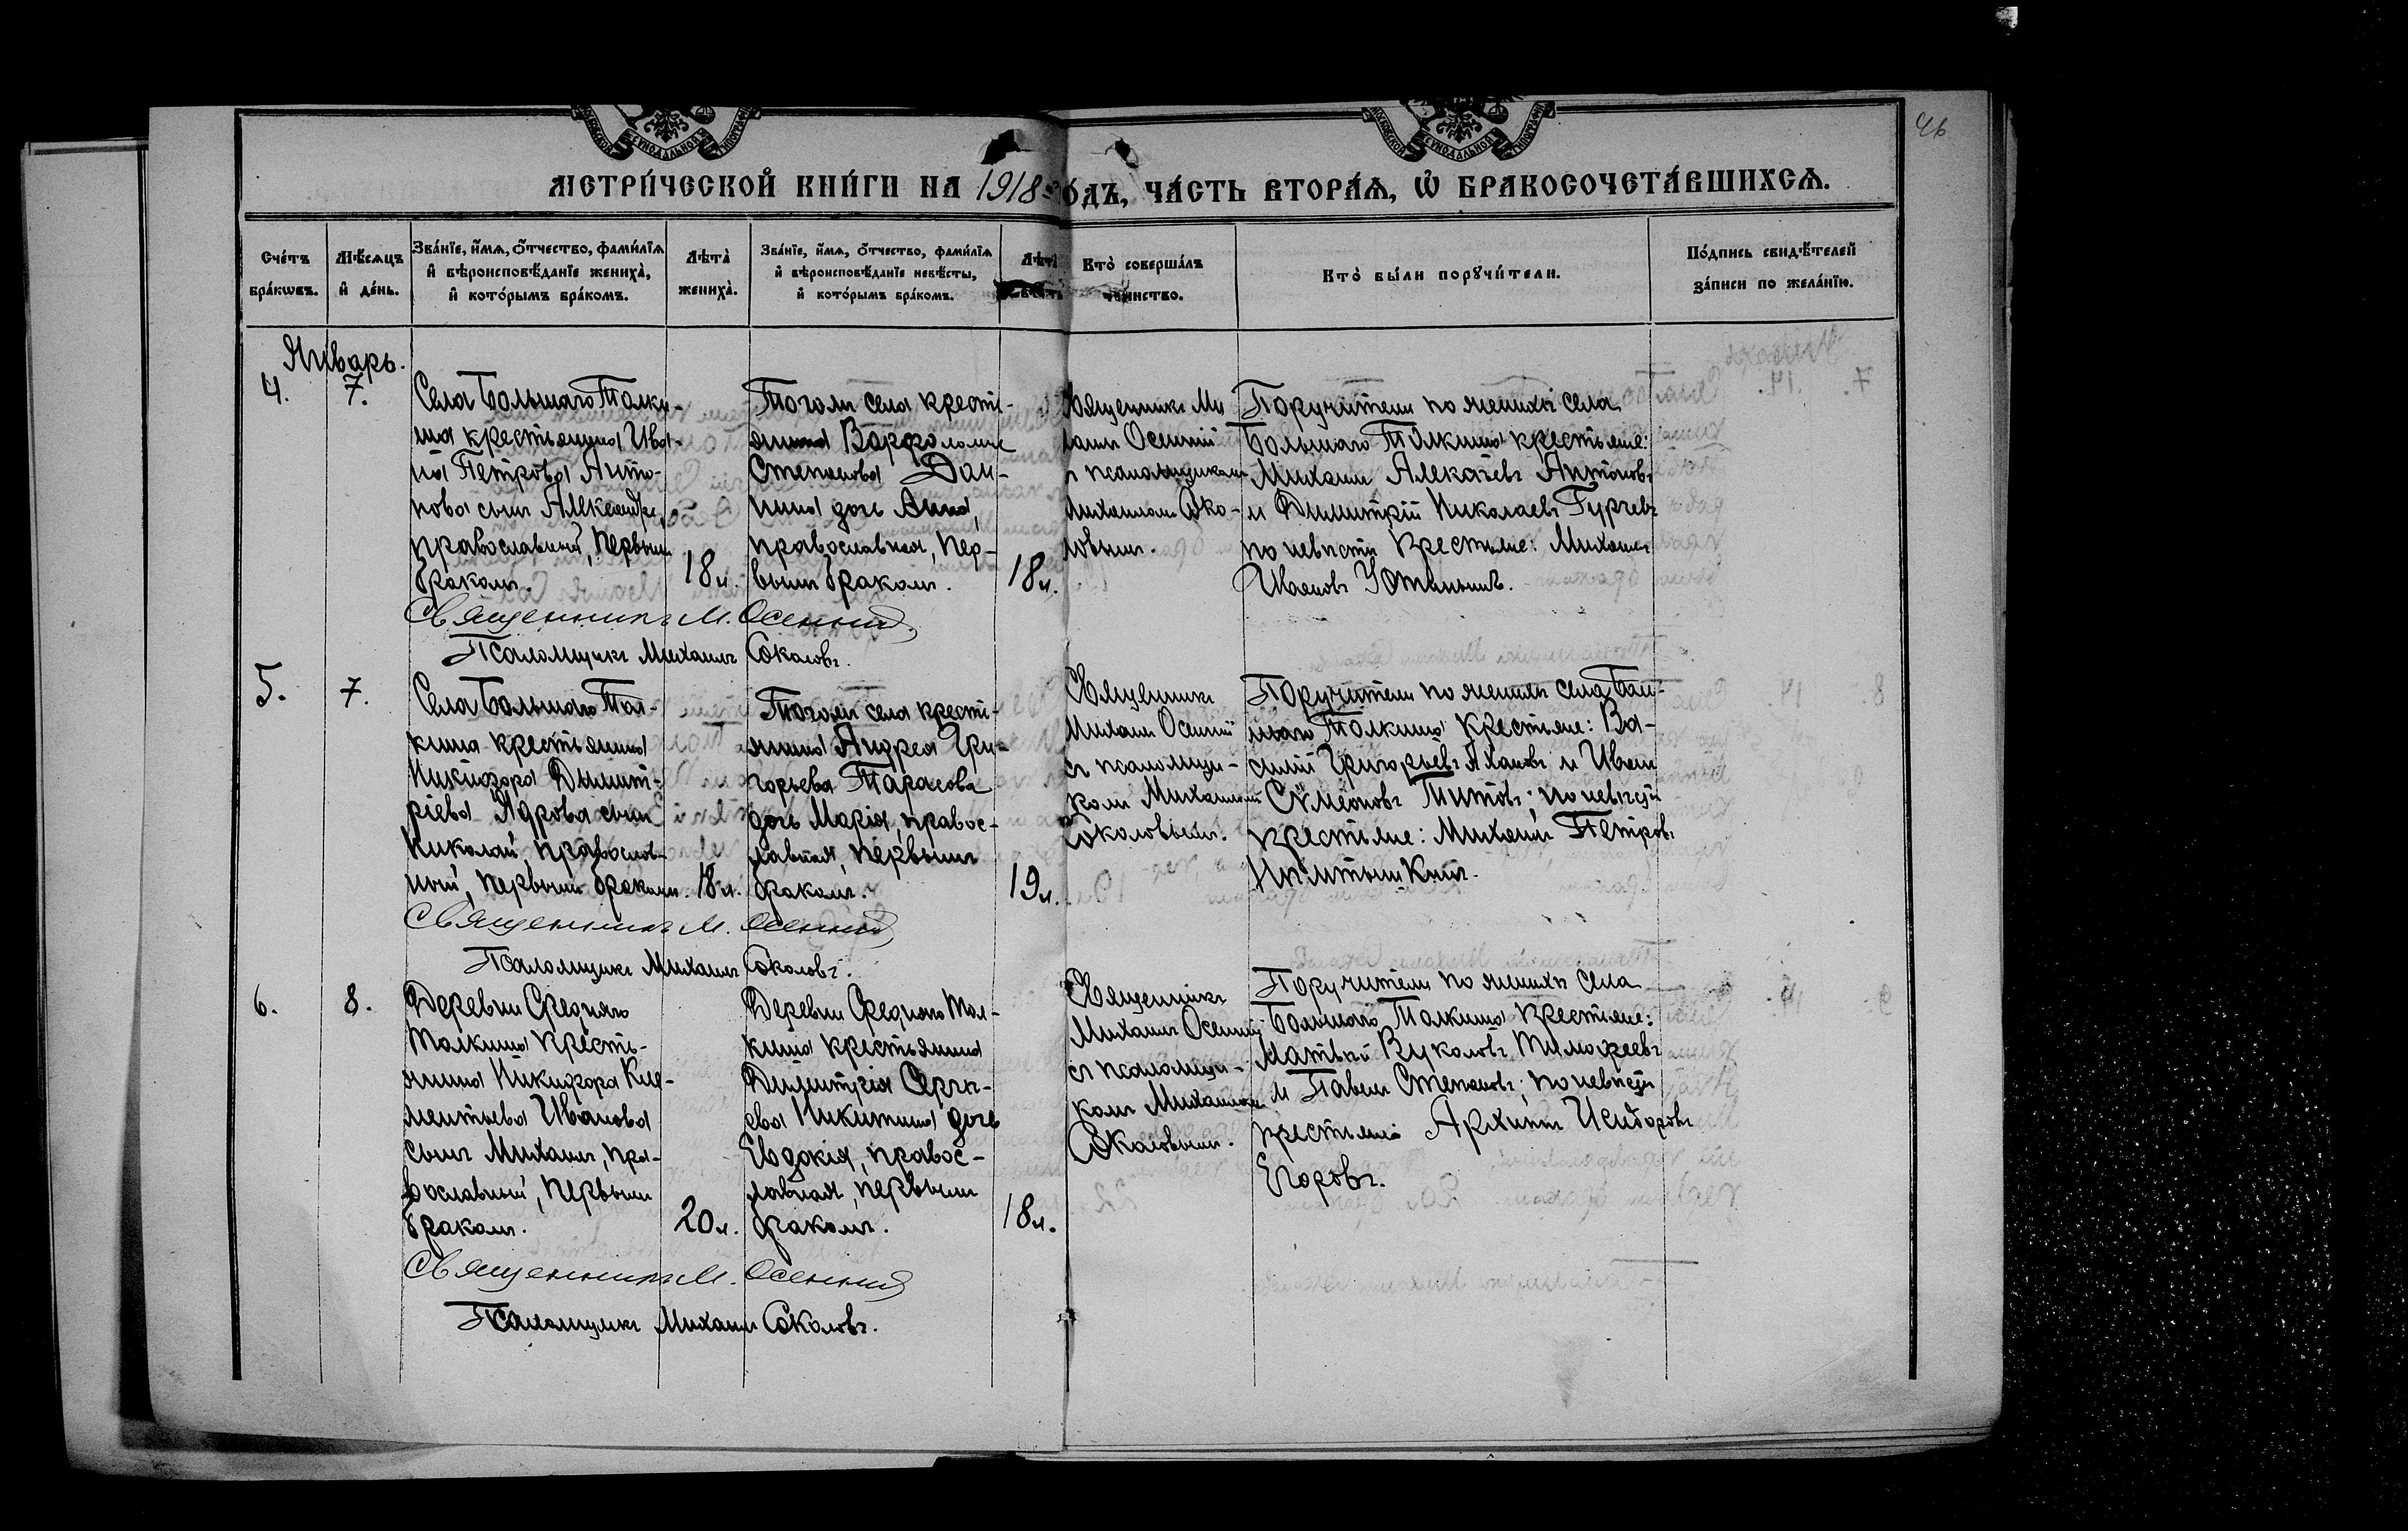 46
МЕТРИЧЕСКОЙ КНИГИ НА 1918 годъ, ЧАСТЬ ВТОРАЯ, Ѽ БРАКОСОЧЕТАВШИХСЯ.
Счетъ браковъ.
Мѣсяцъ и день.
Званіе, имя, отчество, фамилія и вѣроисповѣданіе жениха, и которымъ бракомъ.
Лѣта жениха.
Званіе, имя, отчество, фамилія и вѣроисповѣданіе невѣсты, и которымъ бракомъ.
Лѣта
Кто совершалъ таинство.
Кто были поручители.
Подпись свидѣтелей записи по желанію.
Январь.
4.
7.
Села Большаго Толки-
на крестьянина Ива-
на Петрова Анто-
нова сынъ Александръ,
православный, первымъ
бракомъ.
18 л.
Тогоже села кресть-
янина Варфоломея
Степанова Дани-
нина дочь Анна,
православная, пер-
вымъ бракомъ.
18 л.
Священникъ Ми
хаилъ Осенній
съ псаломщикомъ
Михаиломъ Соко-
ловымъ.
Поручители по женихѣ села
Большаго Толкина крестьяне:
Михаилъ Алексѣевъ Антоновъ
и Димитрій Николаевъ Гурьевъ
по невѣстѣ крестьяне: Михаилъ
Ивановъ
Священникъ М. Осенній
Псаломщикъ Михаилъ Соколовъ.
5.
7.
Села Большаго Тол-
кина крестьянина
Никифора Димит-
ріева Ядрова сынъ
Николай, православ-
ный, первымъ бракомъ.
18 л.
Тогоже села кресть-
янина Андрея Гри-
горьева Тарасова
дочь Марія, правос-
лавная, первымъ
бракомъ.
19 л.
Священникъ
Михаилъ Осенній
съ псаломщи-
комъ Михаиломъ
Соколовымъ.
Поручители по женихѣ села Боль-
шаго Толкина крестьяне: Ва-
силій Григорьевъ и Иванъ
Сѵмеоновъ Титовъ; по невѣстѣ
крестьяне: Михаилъ Петровъ
Священникъ М. Осенній
Псаломщикъ Михаилъ Соколовъ.
6.
8.
Деревни Средняго
Толкина кресть-
янина Никифора Кле-
ментьева Иванова
сынъ Михаилъ, пра-
вославный, первымъ
бракомъ.
20 л.
Деревни Средняго Тол-
кина крестьянина
Димитрія Сергѣ-
ева Никитина дочь
Евдокія, правос-
лавная, первымъ
бракомъ.
18 л.
Священникъ
Михаилъ Осенній
съ псаломщи-
комъ Михаиломъ
Соколовымъ.
Поручители по женихѣ села
Большаго Толкина крестьяне:
Матвѣй Вуколовъ Тимофеевъ
и Павелъ Степановъ; по невѣстѣ
крестьяне Архипъ Исидоровъ
Егоровъ.
Священникъ М. Осенній
Псаломщикъ Михаилъ Соколовъ.